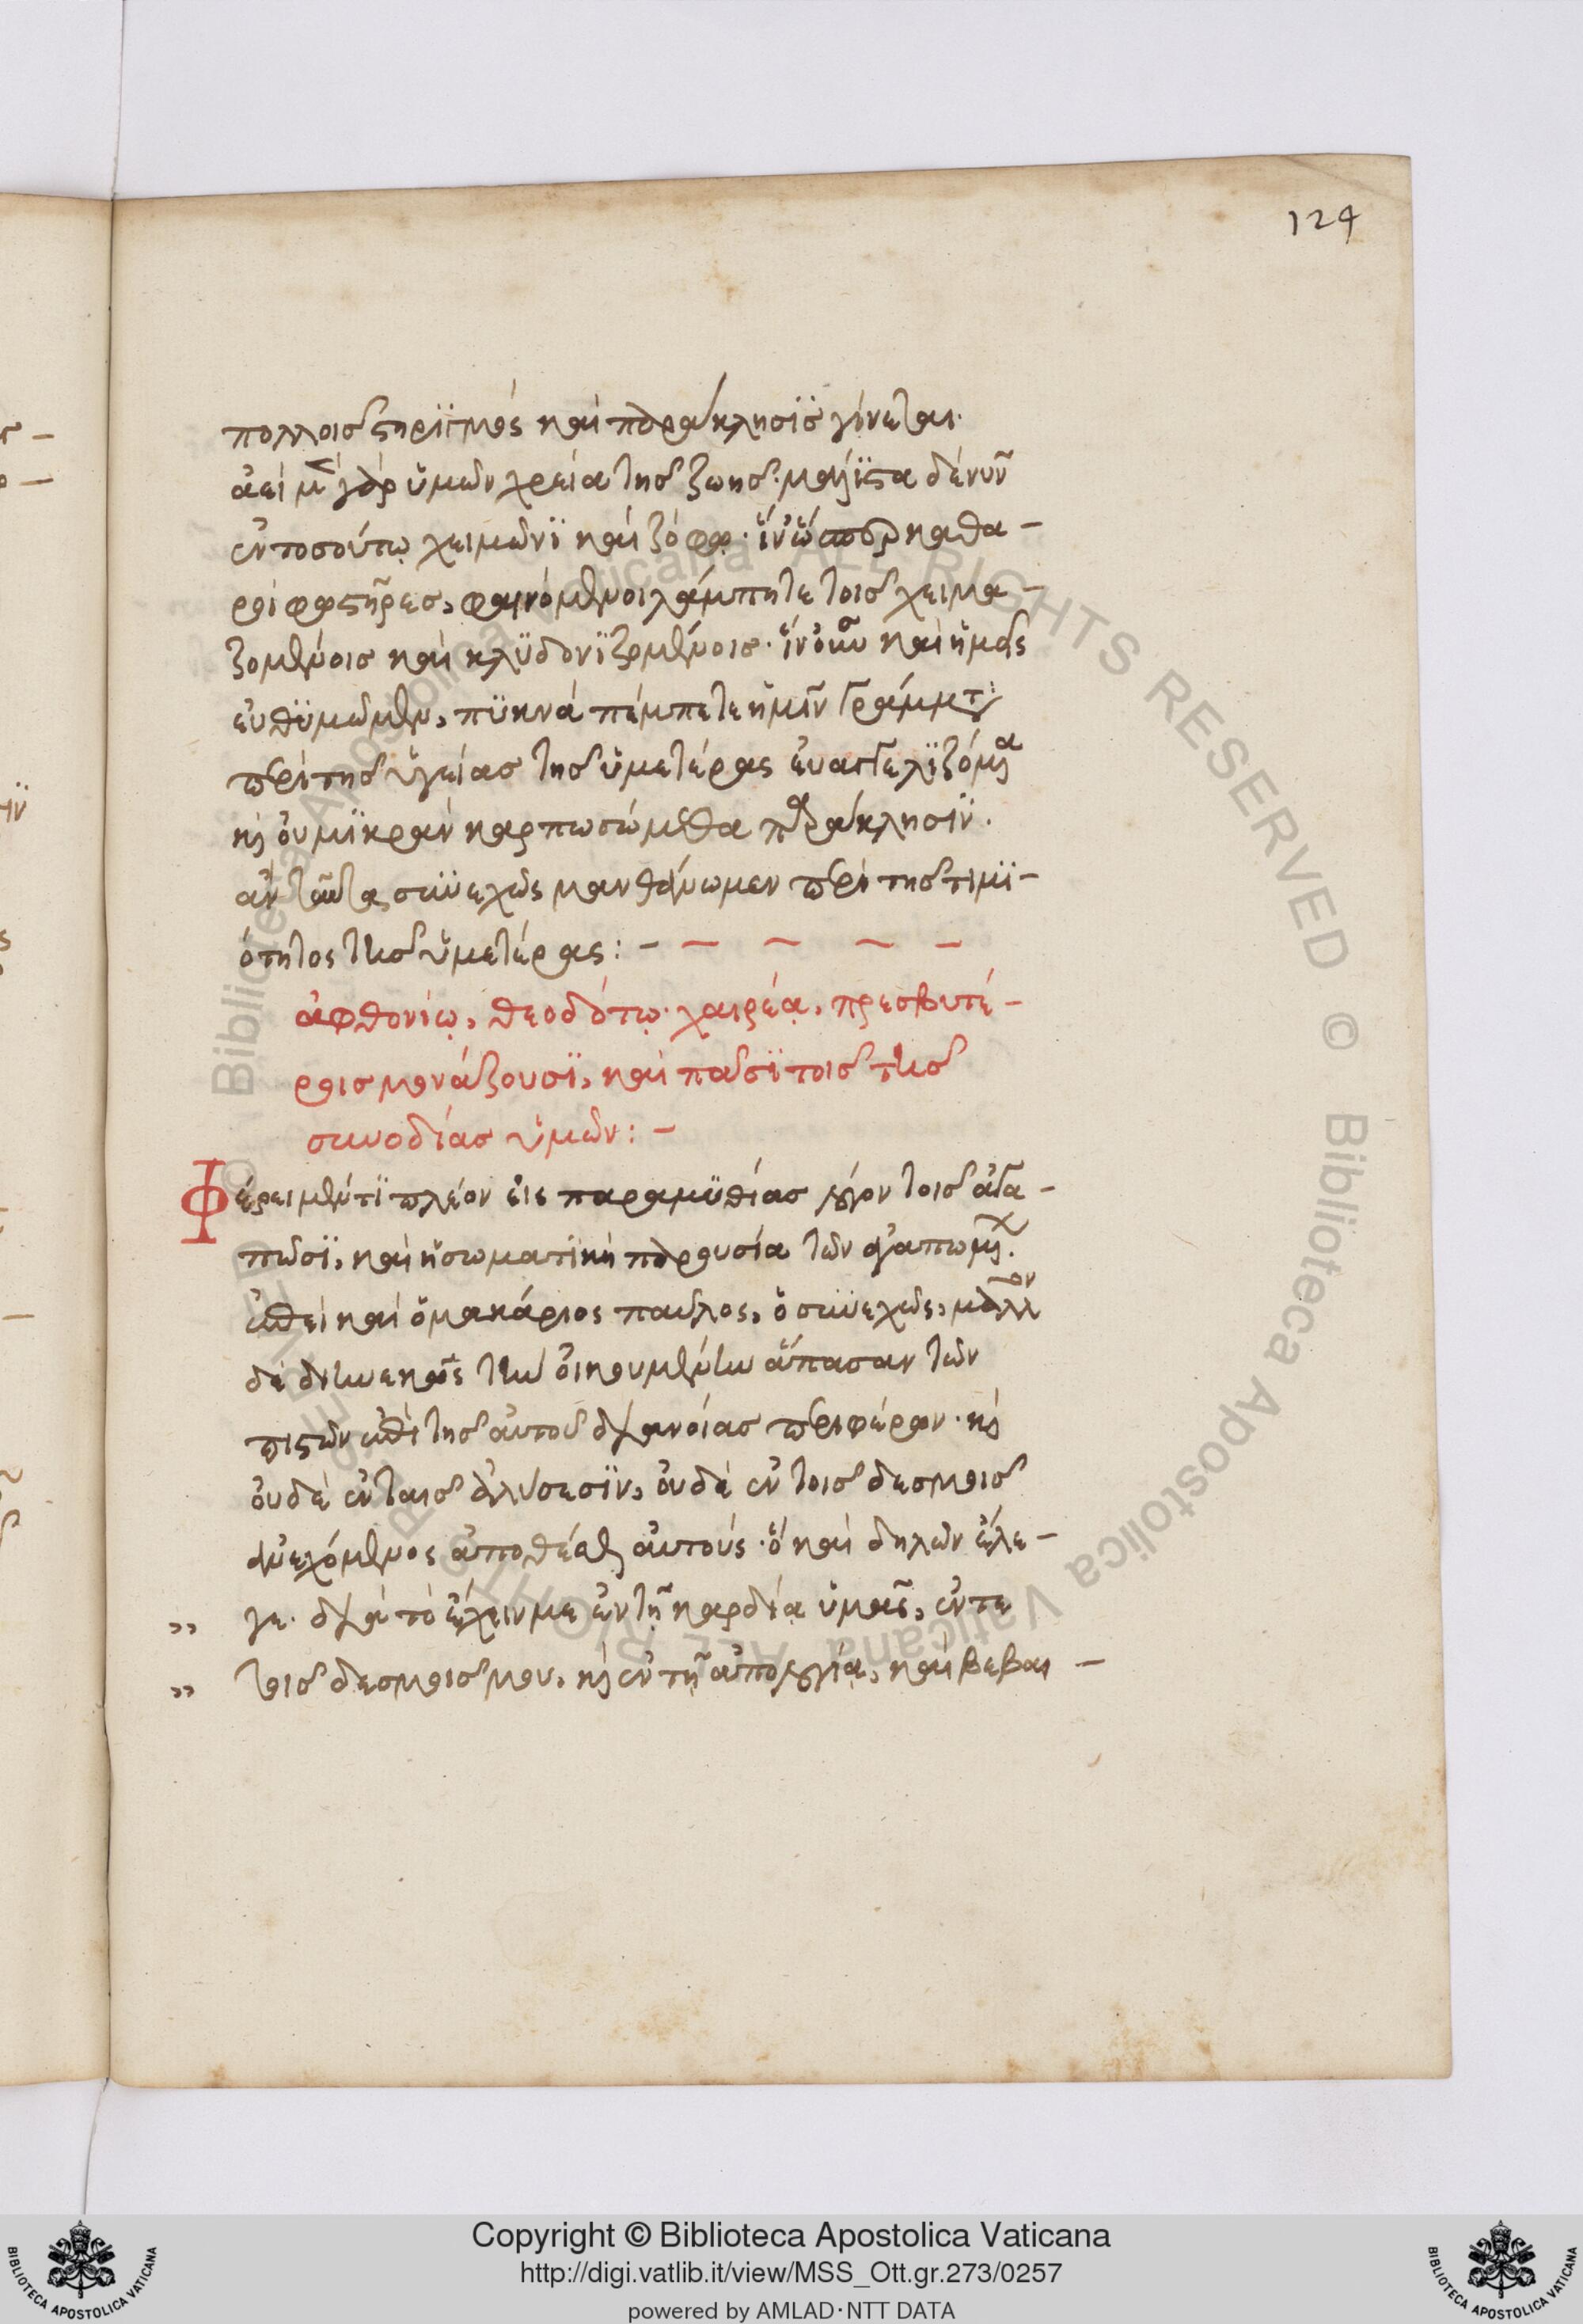 124
πολλοῖς στηριγμὸς καὶ παράκλησις γίνεται.
ἀεὶ μὲν γὰρ ὑμῶν χρεία τῆς ζωῆς. μάλιστα δὲ νῦν
ἐν τοσούτῳ χειμῶνι καὶ ζόφῳ. ἵν' ὥσπερ καθα-
ροὶ φωστῆρες, φαινόμενοι λάμπητε τοῖς χειμα-
ζομένοις καὶ κλυδωνιζομένοις. ἵν' οὖν καὶ ἡμεῖς
εὐθυμῶμεν, πυκνὰ πέμπετε ἡμῖν γράμματα
περὶ τῆς ὑγείας τῆς ὑμετέρας εὐαγγελιζόμενα
καὶ οὐ μικρὰν καρπωσώμεθα παράκλησιν.
ἂν ταῦτα συνεχῶς μανθάνωμεν περὶ τῆς τιμι-
ότητος τῆς ὑμετέρας: -
ἀφθονίῳ, θεοδότῳ. χαιρέᾳ, πρεσβυτέ-
ροις μονάζουσι, καὶ πᾶσι τοῖς τῆς
συνοδίας ὑμῶν: -
Φέρει μέν τι πλέον εἰς παραμυθίας λόγον τοῖς ἀγα-
πῶσι, καὶ ἡ σωματικὴ παρουσία τῶν ἀγαπωμένων.
ἐπεὶ καὶ ὁ μακάριος παῦλος, ὁ συνεχῶς, μᾶλλον
δὲ διηνεκῶς τὴν οἰκουμένην ἅπασαν τῶν
πιστῶν ἐπὶ τῆς αὐτοῦ διανοίας περιφέρων. καὶ
οὐδὲ ἐν ταῖς ἁλύσεσιν, οὐδὲ ἐν τοῖς δεσμοῖς
ἀνεχόμενος ἀποθέσθαι αὐτούς. ὃ καὶ δηλῶν ἔλε-
" γε. διὰ τὸ ἔχειν με ἐν τῇ καρδίᾳ ὑμᾶς, ἔν τε
" τοῖς δεσμοῖς μου, καὶ ἐν τῇ ἀπολογίᾳ, καὶ βεβαι-
Copyright © Biblioteca Apostolica Vaticana
http://digi.vatlib.it/view/MSS_Ott.gr.273/0257
powered by AMLAD·NTT DATA